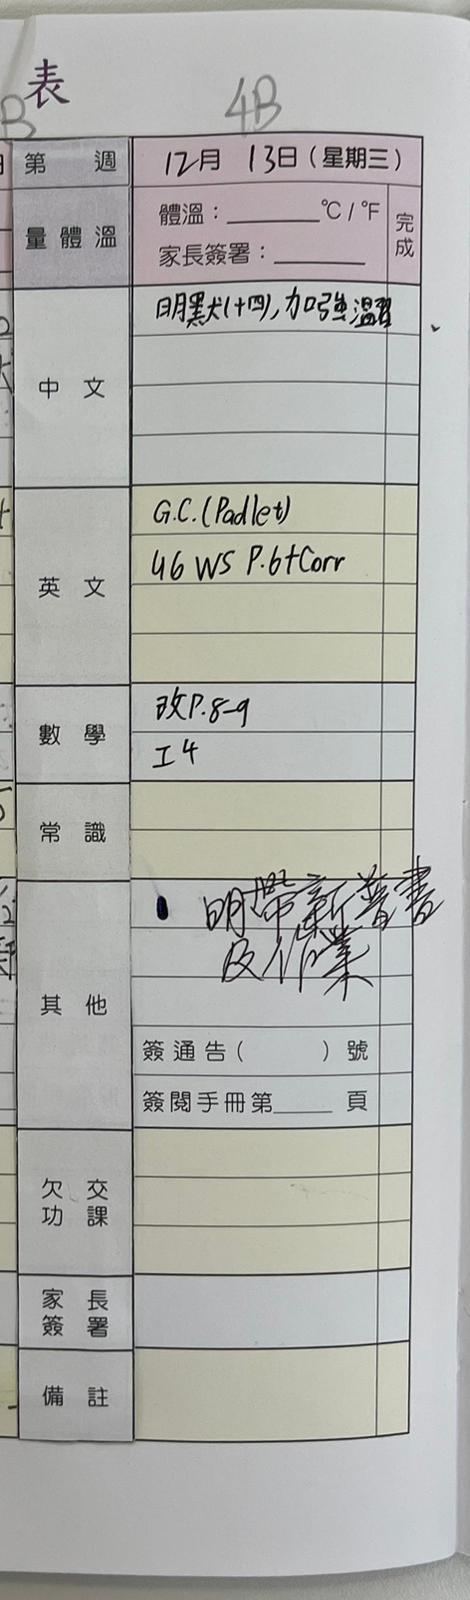 表
4B
第 週
12月 13日(星期三)
量體溫
體溫：______℃/℉
家長簽署：______
完成
中文
明默(十四),加強溫習
英文
G.C.(Padlet)
U6 WS P.6+Corr
數學
改P.8-9
工4
常識
其他
明帶新普書
及作業
簽通告( )號
簽閱手冊第____頁
欠交功課
家長簽署
備註